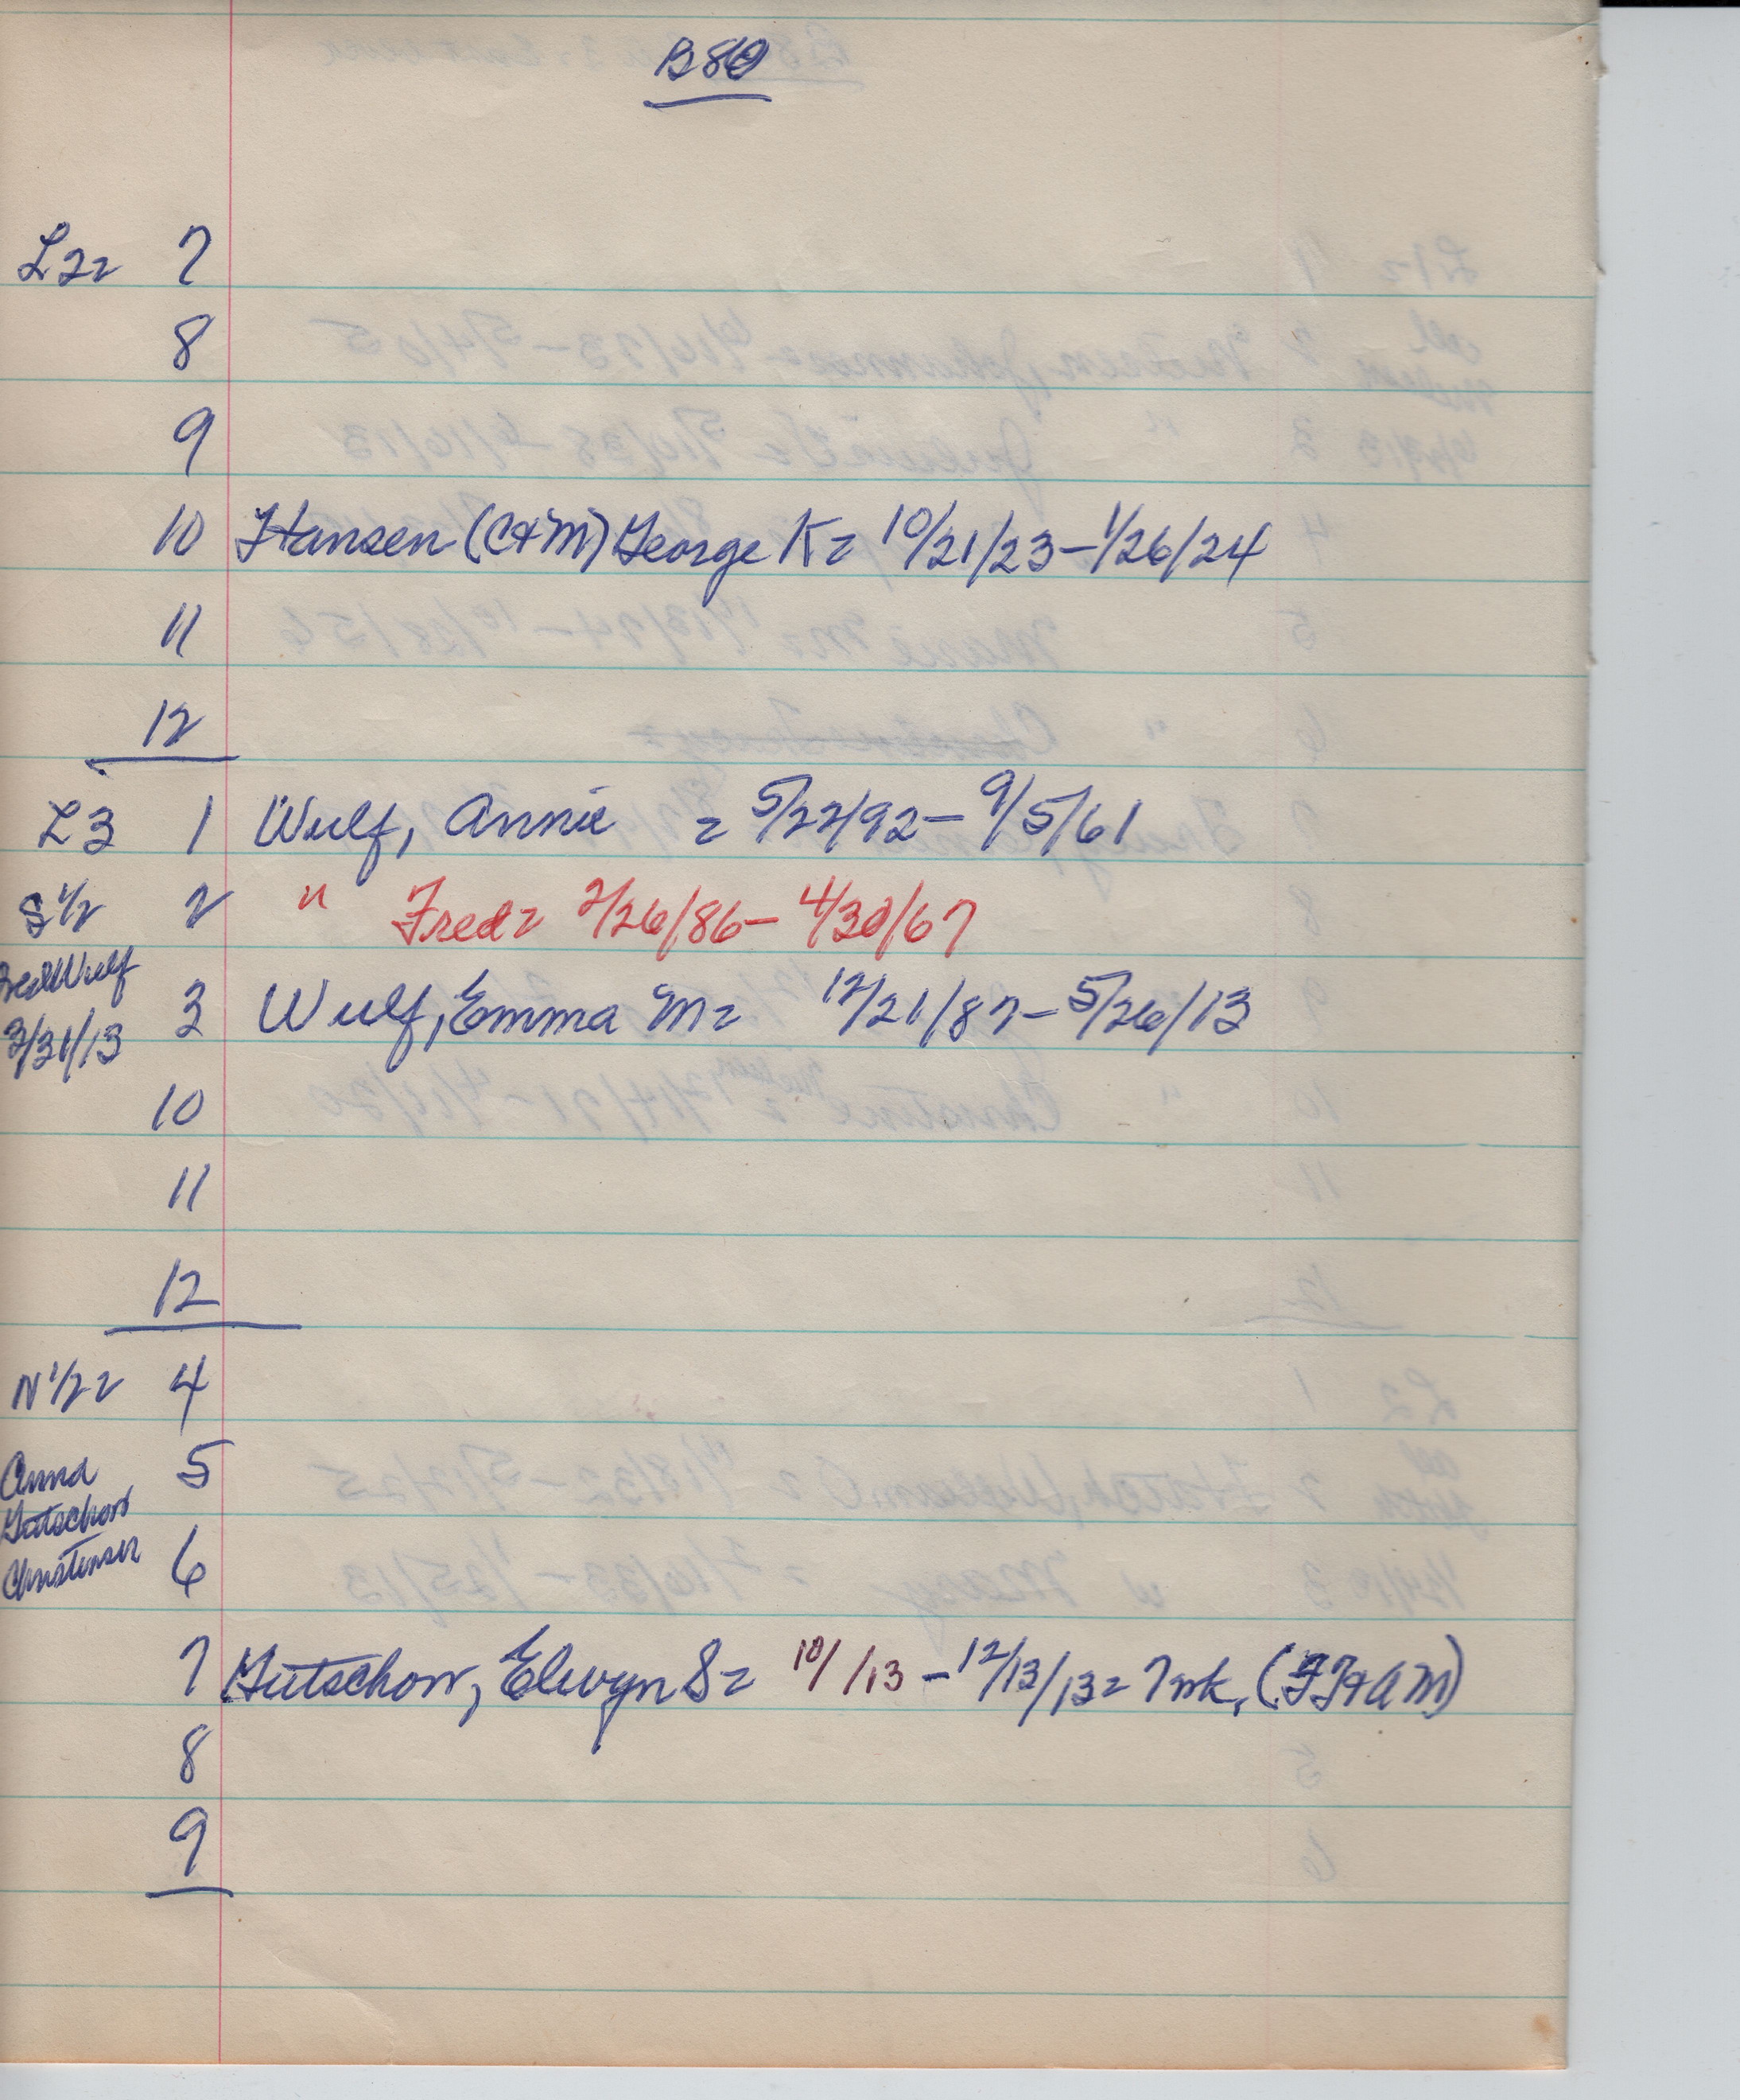 B80
L2= 7
8
9
10 Hansen (C+M) George K= 10/21/23-1/26/24
11
12
L3 1 Wulf, Annie = 5/22/92-9/5/61
S 1/2 2 " Fred= 2/26/86-4/30/67
Fred Wulf
3/31/13 3 Wulf, Emma M= 12/21/87-5/26/13
10
11
12
N 1/2= 4
Anna 5
Gutschow
Christensen 6
7 Gutschow, Elwyn S= 10/ /13-12/13/13= 7wk. (F+AM)
8
9